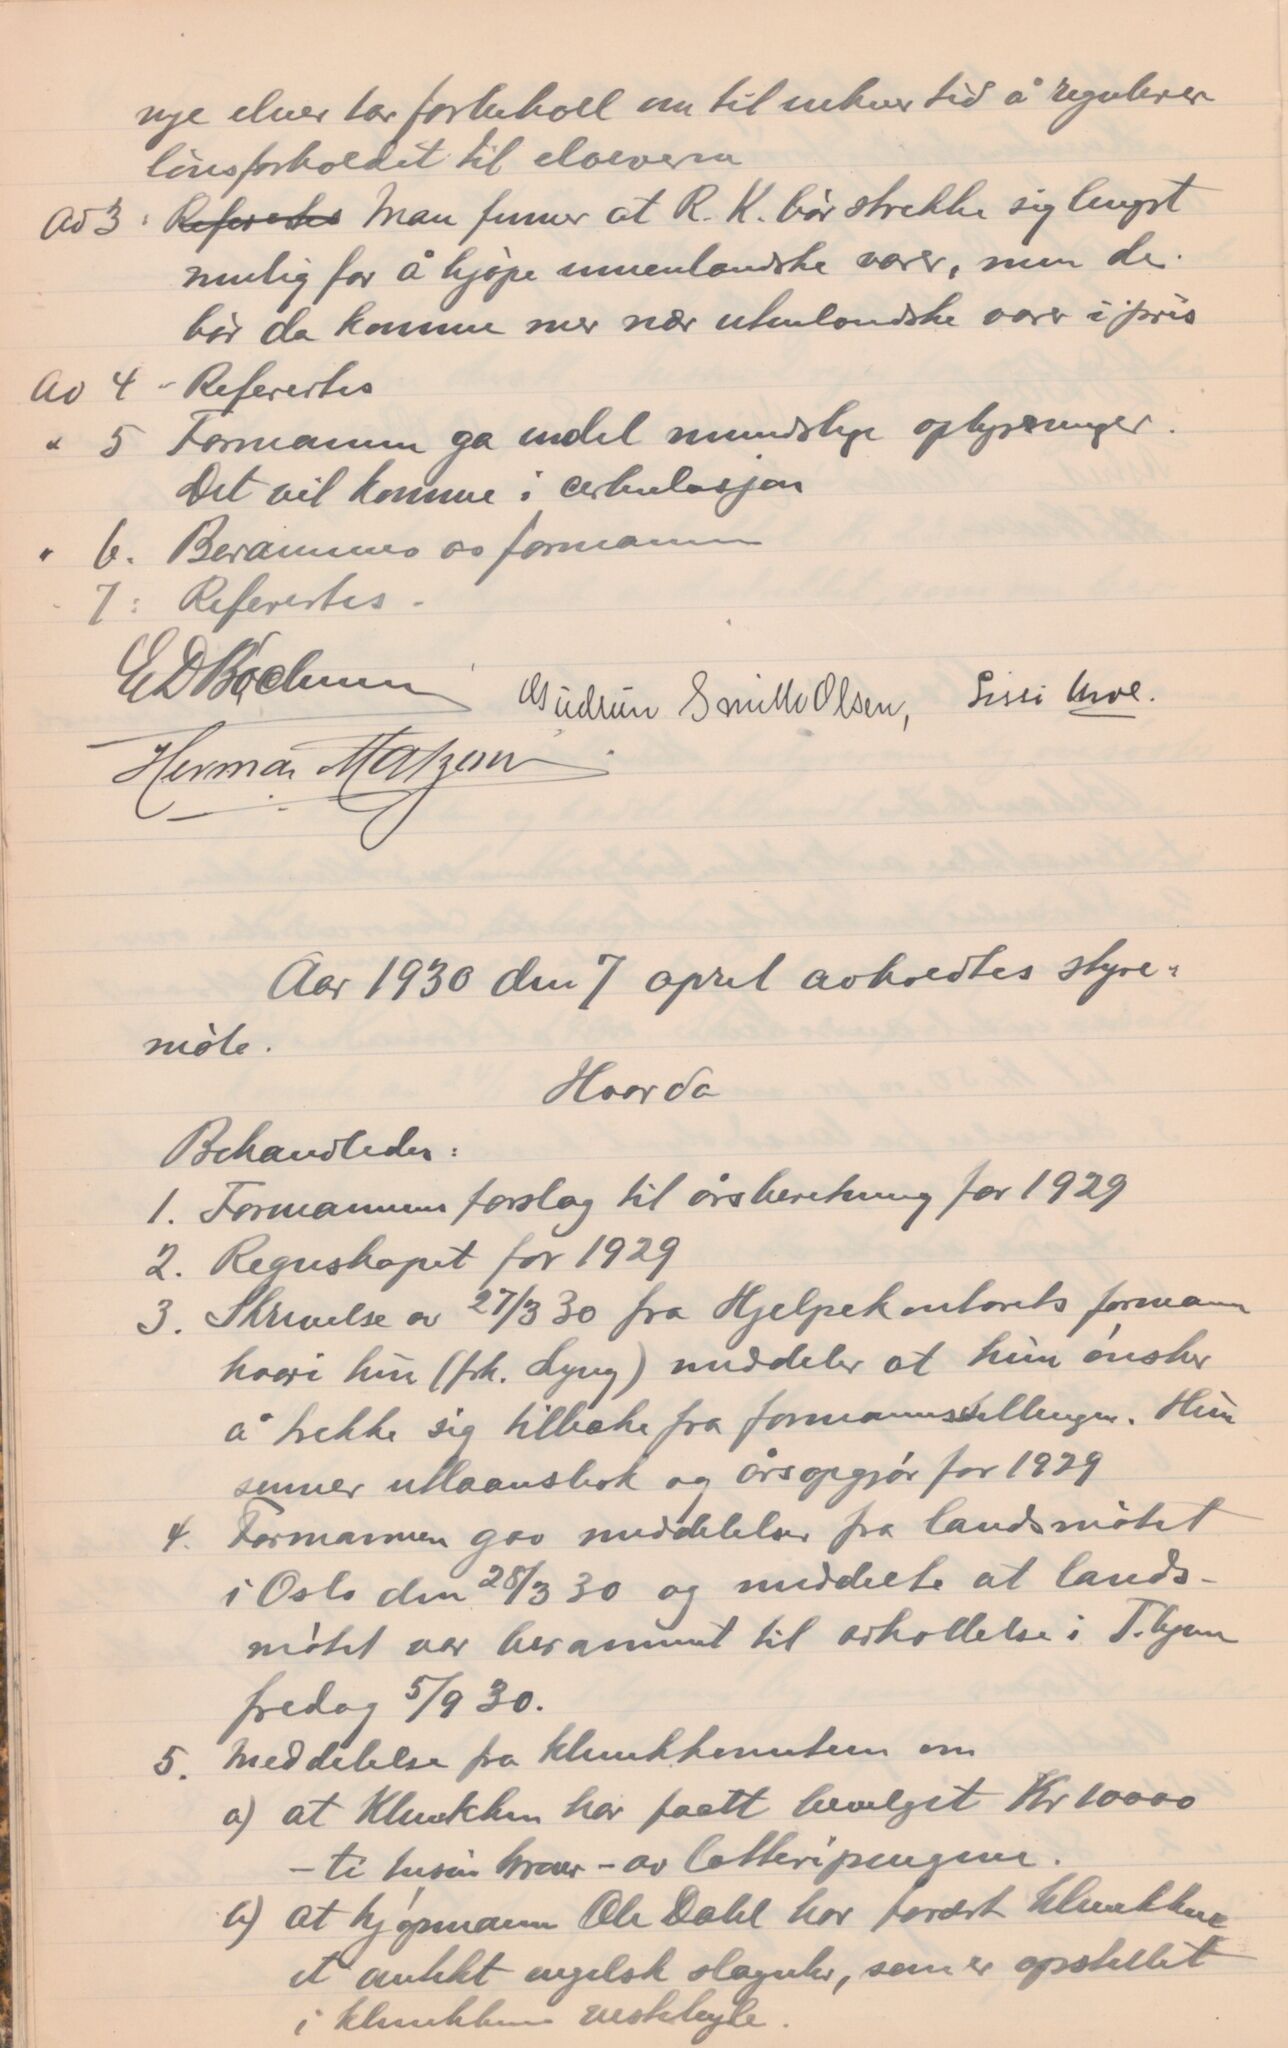 nye elver tar forbeholl om til enhver tid å regulere
lönsforholdet til eleverne
Ad 3: Referertes Man finner at R. K. bör strekke sig lengst
mulig for å kjöpe innenlandske varer, men de
bör da komme mer nær utenlandske varer i pris
Ad 4 - Referertes
" 5 Formannen ga endel mundtlige oplysninger.
Det vil komme i cirkulasjon
" 6. Berammes av formannen
" 7: Referertes -
E D Böckmann
Gudrun Smith Olsen, Sissi
Herman Matzow
Aar 1930 den 7 april avholdtes styre-
möte.
Hvorda
Behandledes:
1. Formannens forslag til årsberetning for 1929
2. Regnskapet for 1929
3. Skrivelse av 27/3 30 fra Hjelpekontorets formann
hvori hun (frk. Lyng) meddeler at hun önsker
å trekke sig tilbake fra formannsstillingen. Hun
senner utlaansbok og årsopgjör for 1929
4. Formannen gav meddelelser fra landsmötet
i Oslo den 28/3 30 og meddelte at lands-
mötet var berammet til avholdelse i T.hjem
fredag 5/9 30.
5. Meddelelse fra klinikkomiteen om
a) at Klinikken har faatt bevilget Kr 10000
- ti tusin kroner - av lotteripengene.
b) at kjöpmann Ole Dahl har forært klinikken
et antikt engelsk slagur, som er opstillet
i klinikkens vestibyle.